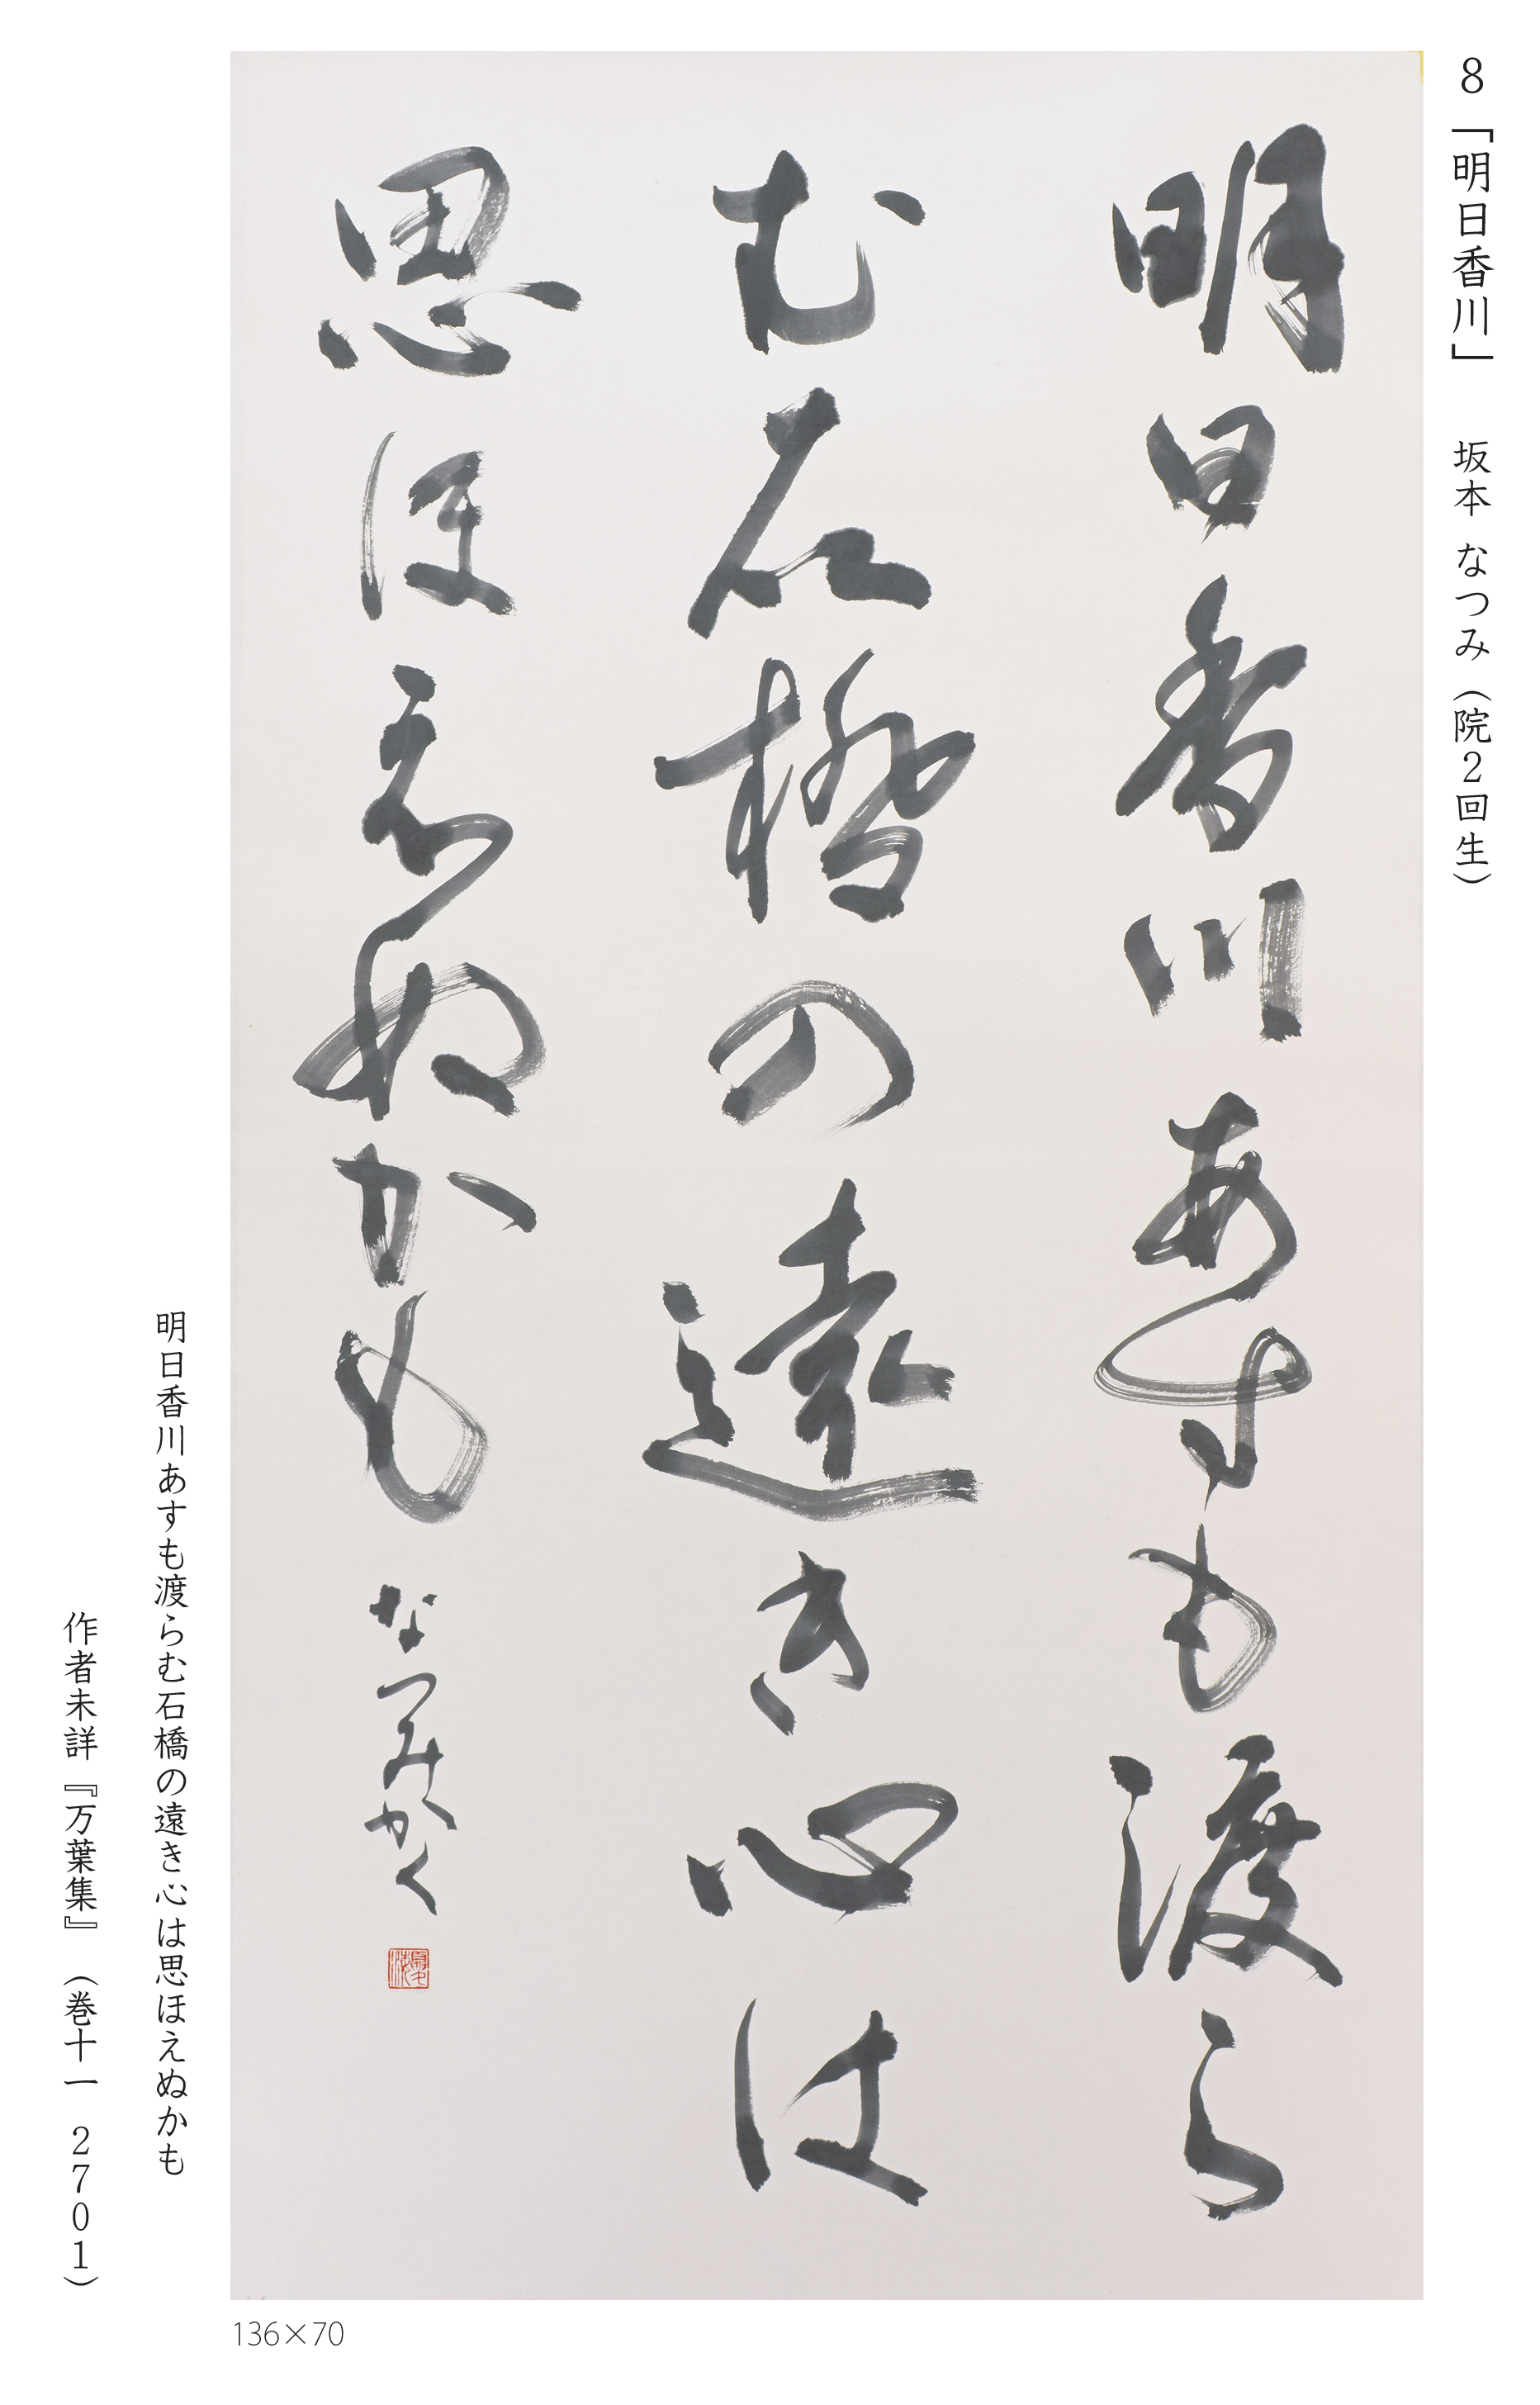 8「明日香川」　坂本 なつみ（院2回生）
明日香川あすも渡ら
む石橋の遠き心は
思ほえぬかも なつみかく
明日香川あすも渡らむ石橋の遠き心は思ほえぬかも
作者未詳『万葉集』（巻十一　2701）
136×70